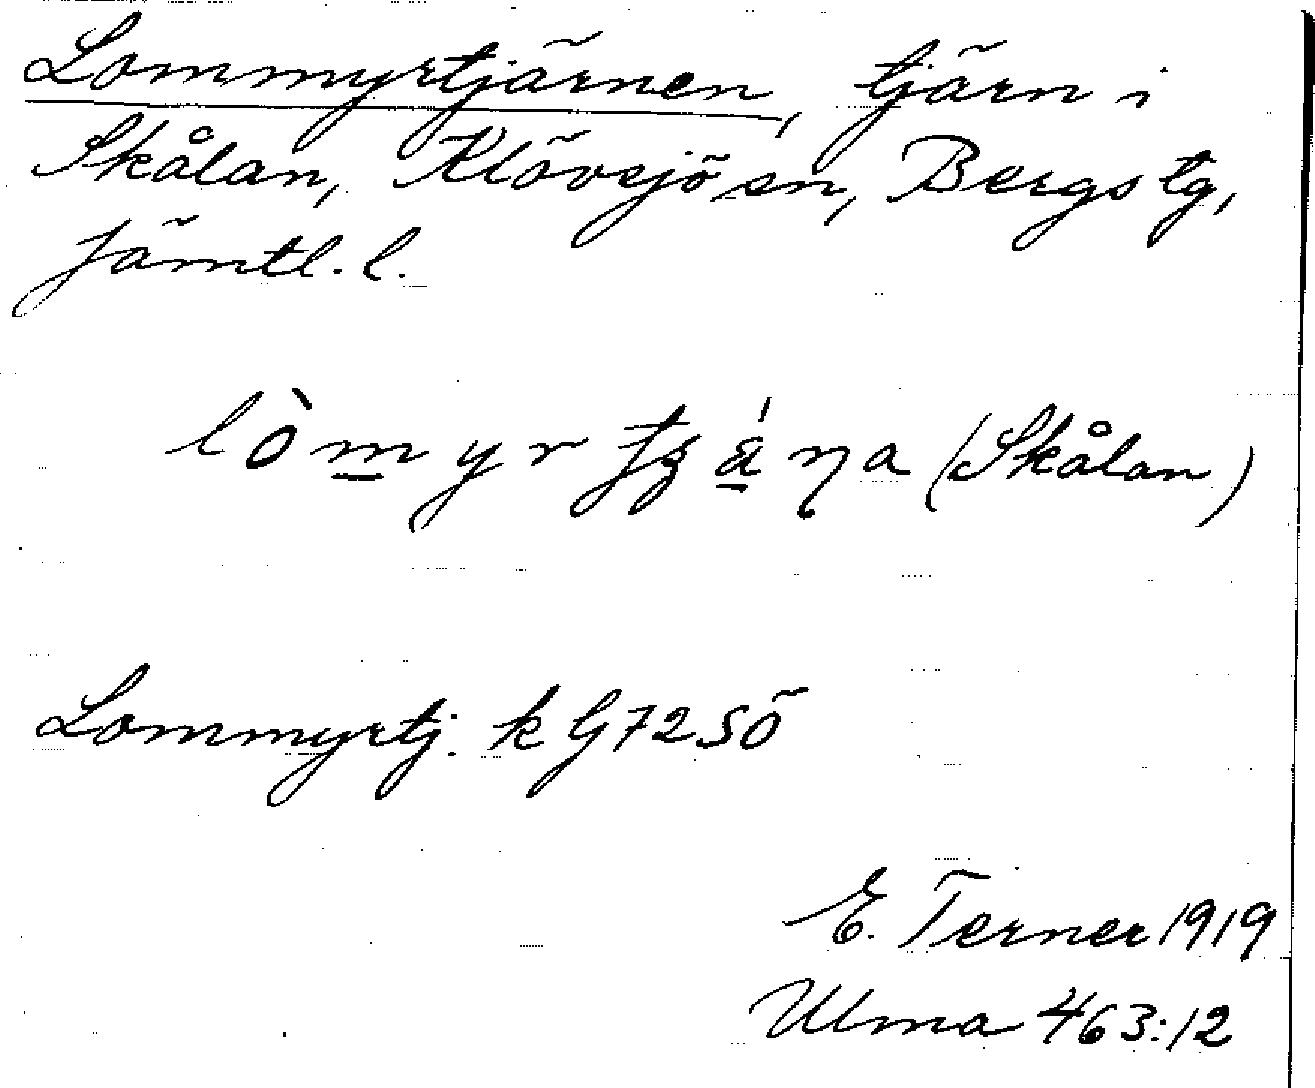 Lommyrtjärnen, tjärn i
Skålan, Klövsjö sn, Bergs tg,
Jämtl. l.
(Skålan)
Lommyrtj. k G 72 SÖ
E. Terner 1919
Ulma 463:12